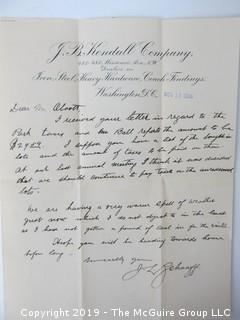 J. B. Kendall Company,
Dealers in
Iron, Steel, Heavy Hardware, Coach Findings,
Washington, D.C.
Dear Mr. Alcott
I received your letter in regard to the
Park Lanes and Mr Bell reports the amount to be
$2922. I suppose you have a list of the
lots and the amount of taxes to be paid on them
At our last annual meeting I think it was decided
that we should continue to pay taxes on the unredeemed
lots.
We are having a very warm spell of weather
just now which I do not object to in the least
as I have not gotten a pound of coal in for the winter.
I hope you will be heading towards home
before long.
Sincerely yours
J. L. Schaaff
Copyright 2019 - The McGuire Group LLC